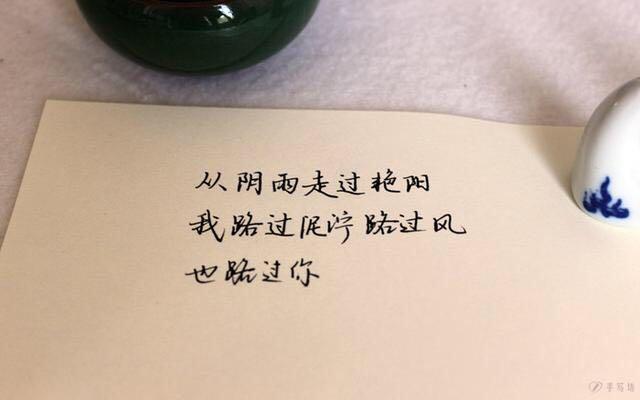 从阴雨走过艳阳
我路过泥泞路过风
也路过你
手写坊